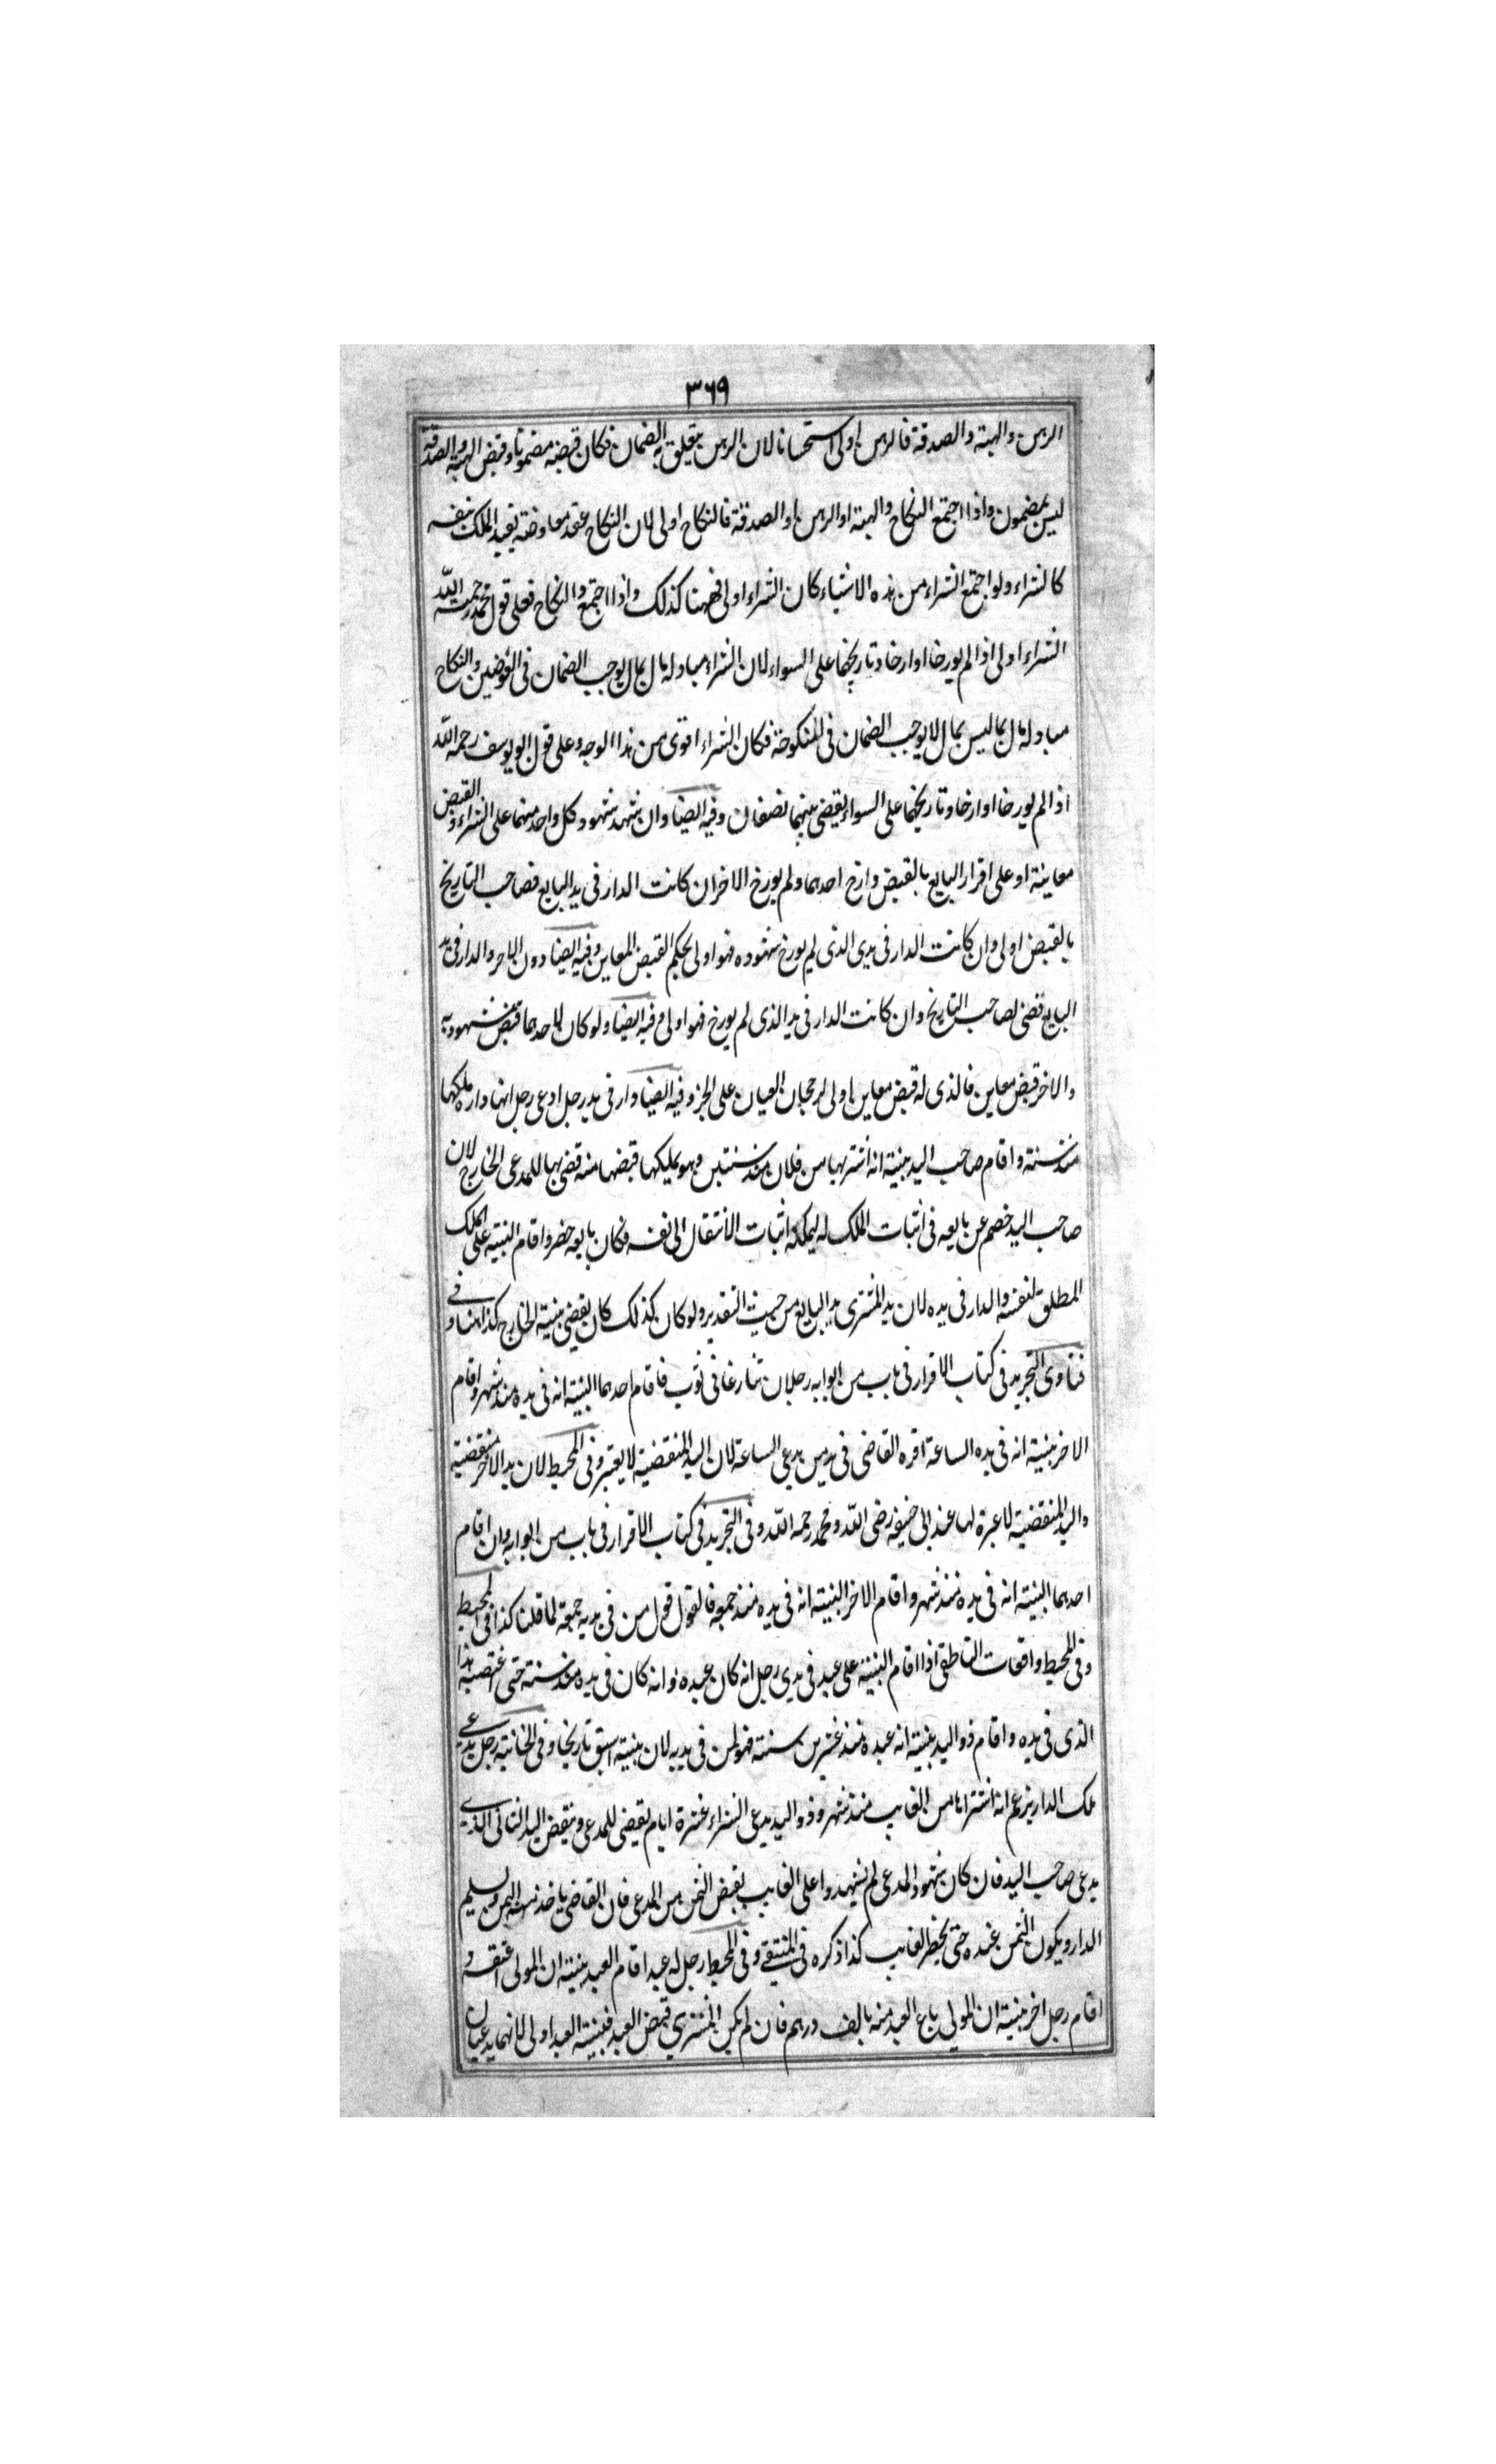 ٣٦٩
الرهن والهبة والصدقة فالرهن اولى استحسانا لان الرهن يتعلق به الضمان فكان قبضه مضمونا وقبض الهبة والصدقة
ليس بمضمون واذا اجتمع النكاح والهبة او الرهن او الصدقة فالنكاح اولى لان النكاح عقد معاوضة يفيد الملك بنفسه
كالشراء ولو اجتمع الشراء من هذه الاشياء كان الشراء اولى فههنا كذلك واذا اجتمع والنكاح فعلى قول محمد رحمة الله
الشراء اولى اذا لم يورخا او ارخا وتاريخهما على السواء لان الشراء مبادلة مال بمال يوجب الضمان فى العوضين والنكاح
مبادلة مال بما ليس بمال لا يوجب الضمان فى المنكوحة فكان الشراء اقوى من هذا الوجه وعلى قول ابو يوسف رحمه الله
اذا لم يورخا او ارخا وتاريخهما على السواء يقضى بينهما نصفان وفيه ايضا وان شهد شهود كل واحد منهما على الشراء والقبض
معاينة او على اقرار البايع بالقبض وارخ احدهما ولم يورخ الاخر ان كانت الدار فى يد البايع فصاحب التاريخ
بالقبض اولى وان كانت الدار فى يدى الذى لم يورخ شهوده فهو اولى بحكم القبض المعاين وفيه ايضا دون الاخر والدار فى يد
البايع قضى لصاحب التاريخ وان كانت الدار فى يد الذى لم يورخ فهو اولى وفيه ايضا ولو كان لاحدهما قبض مشهود به
والاخر قبض معاين فالذى له قبض معاين اولى لرجحان العيان على الخبر وفيه ايضا دار فى يد رجل ادعى رجل انها داره ملكها
منذ سنة واقام صاحب اليد بينة انه اشتريها من فلان منذ سنتين وهو يملكها قبضها منه قضى بها للمدعى الخارج لان
صاحب اليد خصم عن بايعه فى اثبات الملك له ليمكنه اثبات الانتقال الى نفسه فكان بايعه حضر واقام البينة على الملك
المطلق لنفسه والدار فى يده لان يد المشترى يد البايع من حيث التقدير ولو كان كذلك كان يقضى ببينة الخارج كذا هنا وفى
فتاوى التجريد فى كتاب الاقرار فى باب من ابوابه رجلان تنازعا فى ثوب فاقام احدهما البينة انه فى يده منذ شهر واقام
الاخر بينة انه فى يده الساعة اقره القاضى فى يد من يدعى الساعة لان اليد المنقضية لا يعتبر وفى المحيط لان يد الاخر منقضية
واليد المنقضية لا عبرة لها عند ابى حنيفه رضى الله ومحمد رحمه الله وفى التجريد فى كتاب الاقرار فى باب من ابوابه وان اقام
احدهما البينة انه فى يده منذ شهر واقام الاخر البينة انه فى يده منذ جمعه فالقول قول من فى يديه جمعة لما قلنا كذا فى المحيط
وفى المحيط واقعات الناطقى اذا اقام البينة على عبد فى يدى رجل انه كان عبده وانه كان فى يده منذ سنة حتى اغتصبه هذا
الذى فى يده واقام ذو اليد بينة انه عبده منذ عشرين سنة فهو لمن فى يديه لان بينته اسبق تاريخا وفى الخانية رجل يدعى
ملك الدار يزعم انه اشتراها من الغايب منذ شهر وذو اليد يدعى الشراء عشرة ايام يقضى للمدعى وينقض اليد الثانى الذى
يدعى صاحب اليد فان كان شهود المدعى لم يشهدوا على الغايب بقبض الثمن من المدعى فان القاضى ياخذ منه الثمن ويسلم
الدار ويكون الثمن عنده حتى يحضر الغايب كذا ذكره فى المنتقى وفى المحيط رجل له عبد اقام العبد بينة ان المولى اعتقه و
اقام رجل اخر بينة ان المولى باع العبد منه بالف درهم فان لم يكن المشترى قبض العبد فبينة العبد اولى لانهما يدعيان